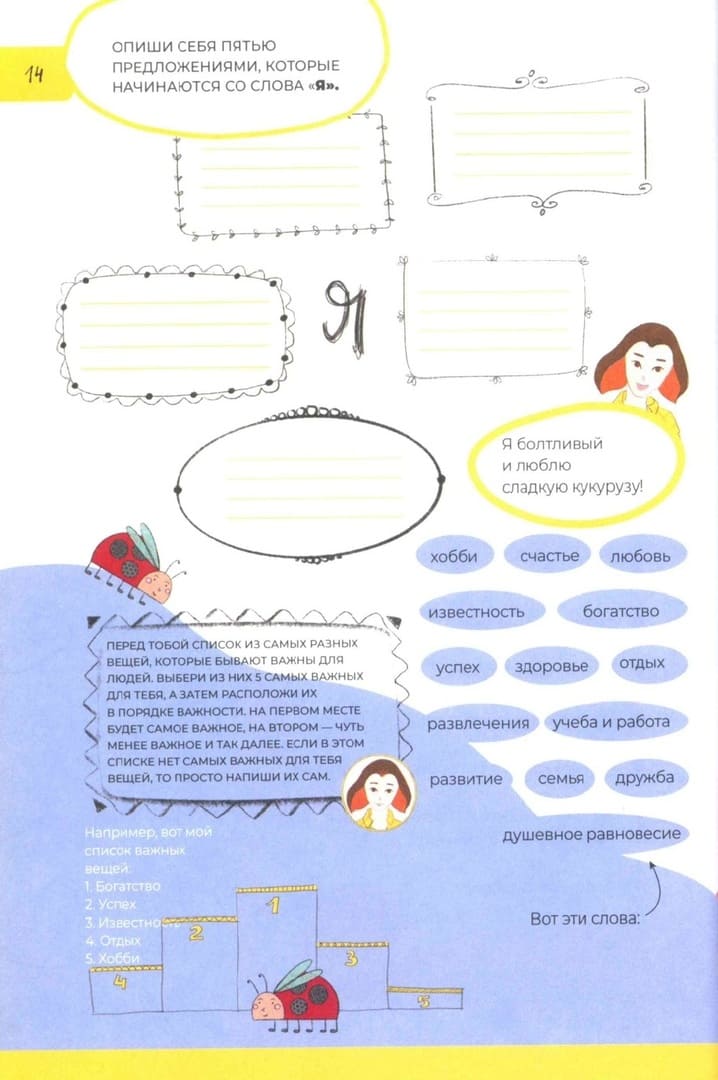 14
ОПИШИ СЕБЯ ПЯТЬЮ
ПРЕДЛОЖЕНИЯМИ, КОТОРЫЕ
НАЧИНАЮТСЯ СО СЛОВА «Я».
Я
Я болтливый
и люблю
сладкую кукурузу!
хобби счастье любовь
известность богатство
успех здоровье отдых
развлечения учеба и работа
развитие семья дружба
душевное равновесие
Вот эти слова:
ПЕРЕД ТОБОЙ СПИСОК ИЗ САМЫХ РАЗНЫХ
ВЕЩЕЙ, КОТОРЫЕ БЫВАЮТ ВАЖНЫ ДЛЯ
ЛЮДЕЙ. ВЫБЕРИ ИЗ НИХ 5 САМЫХ ВАЖНЫХ
ДЛЯ ТЕБЯ, А ЗАТЕМ РАСПОЛОЖИ ИХ
В ПОРЯДКЕ ВАЖНОСТИ. НА ПЕРВОМ МЕСТЕ
БУДЕТ САМОЕ ВАЖНОЕ, НА ВТОРОМ — ЧУТЬ
МЕНЕЕ ВАЖНОЕ И ТАК ДАЛЕЕ. ЕСЛИ В ЭТОМ
СПИСКЕ НЕТ САМЫХ ВАЖНЫХ ДЛЯ ТЕБЯ
ВЕЩЕЙ, ТО ПРОСТО НАПИШИ ИХ САМ.
Например, вот мой
список важных
вещей:
1. Богатство
2. Успех
3. Известность
4. Отдых
5. Хобби
1
2
3
4
5